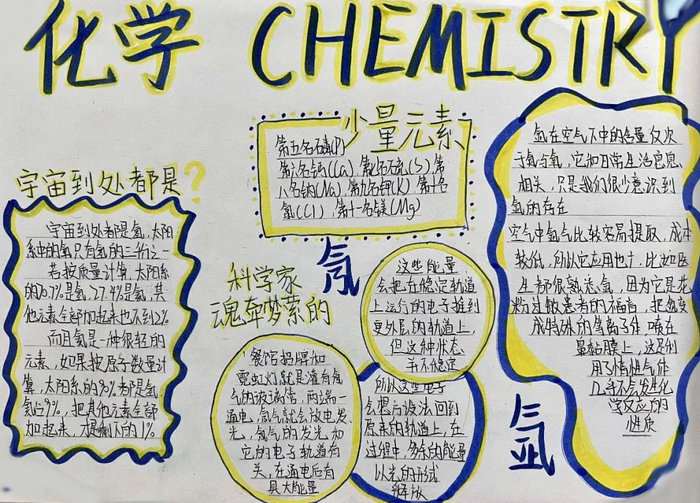 化学 CHEMISTRY
少量元素
第五名磷(P)
第六名钙(Ca) 第七名硫(S) 第
八名钠(Na) 第九名钾(K) 第十名
氯(Cl) 第十一名镁(Mg)
宇宙到处都是?
宇宙到处都是氢,太阳
系中的氦只有氢的三分之一
若按质量计算,太阳系
的70.7%是氢,27.4%是氦,其
他元素全部加起来也不到2%
而且氢是一种很轻的
元素,如果按原子数量计
算,太阳系的90%都是氢,
氦占9%,把其他元素全部
加起来,才是剩下的1%
科学家
魂牵梦萦的
氖
餐馆招牌和
霓虹灯就是灌有氖
气的玻璃管,两端一
通电,氖气就会放电发
光,氖气的发光和
它的电子轨道有
关,在通电后有
具大能量
这些能量
会把在稳定轨道
上运行的电子推到
更外层的轨道上,
但这种状态
并不稳定
所以这些电子
会想方设法回到
原来的轨道上,在
过程中,多余的能量
以光的形式
释放
氩
氩在空气中的含量仅次
于氮与氧,它和日常生活息息
相关,只是我们很少意识到
氩的存在
空气中氩气比较容易提取,成本
较低,所以它应用也广,比如医
生都很熟悉氩气,因为它是花
粉过敏患者的福音,把氩变
成特殊的等离子体 喷在
鼻黏膜上,这是利
用了惰性气体
几乎不会发生化
学反应的
性质